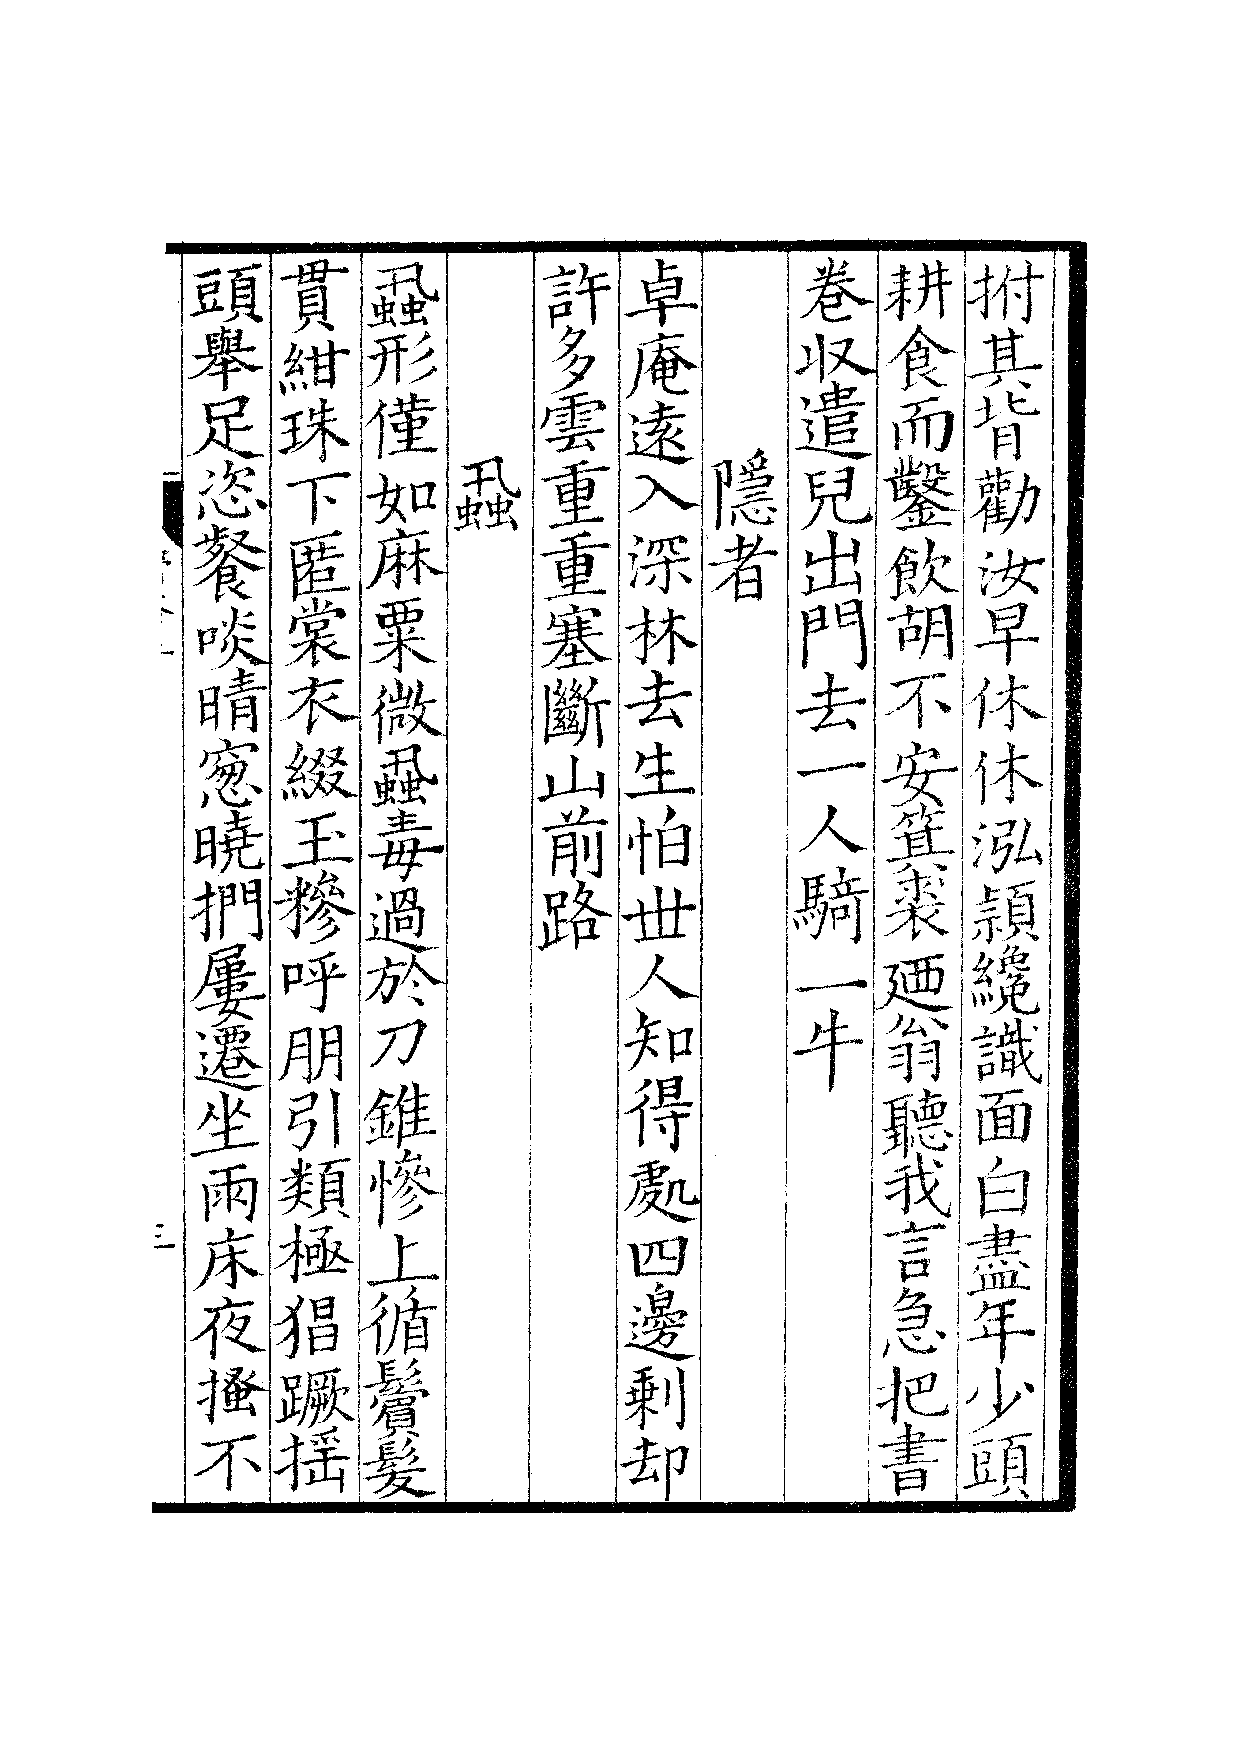 拊其背勸汝早休休泓頴纔識面白盡年少頭
耕食而鑿飲胡不安箕裘廼翁聽我言急把書
卷収遣兒出門去一人騎一牛
隱者
卓庵逺入深林去生怕世人知得處四邊剰却
許多雲重重塞斷山前路
蝨
蝨形僅如麻粟微蝨毒過於刀錐慘上循鬢髪
貫紺珠下匿裳衣綴玉糝呼朋引類極猖蹶揺
頭舉足恣餐啖晴窓曉捫屢遷坐雨床夜搔不
三